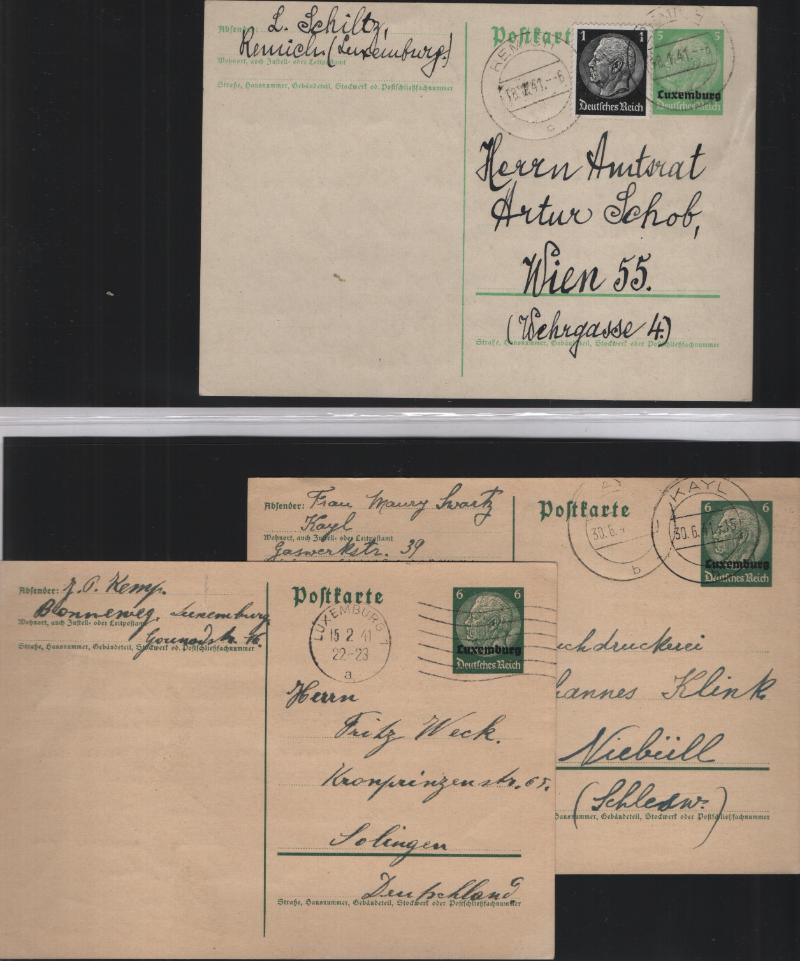 Absender: L. Schiltz,
Remich (Luxemburg.)
Wohnort, auch Zustell- oder Leitpostamt
Straße, Hausnummer, Gebäudeteil, Stockwerk od. Postschließfachnummer
Postkart
1 1
Deutsches Reich
5 5
Luxemburg
Deutsches Reich
REMICH
18. 1. 41.-6
c
Herrn Amtsrat
Artur Schob,
Wien 55.
(Wehrgasse 4.)
Straße, Hausnummer, Gebäudeteil, Stockwerk oder Postschließfachnummer
Absender: Frau Maury Swartz
Kayl
Wohnort, auch Zustell- oder Leitpostamt
Gaswerkstr. 39
Postkarte
KAYL
30.6.41.-15
b
6 6
Luxemburg
Deutsches Reich
chdruckerei
hannes Klink
Niebüll
(Schlesw.)
Hausnummer, Gebäudeteil, Stockwerk oder Postschließfachnummer
Absender: J. P. Kemp.
Bonneweg, Luxemburg
Wohnort, auch Zustell- oder Leitpostamt
Straße, Hausnummer, Gebäudeteil, Stockwerk od. Postschließfachnummer
Postkarte
LUXEMBURG 1
15 2 41
22-23
a
6 6
Luxemburg
Deutsches Reich
Herrn
Fritz Weck.
Kronprinzenstr. 65.
Solingen
Deutschland
Straße, Hausnummer, Gebäudeteil, Stockwerk oder Postschließfachnummer